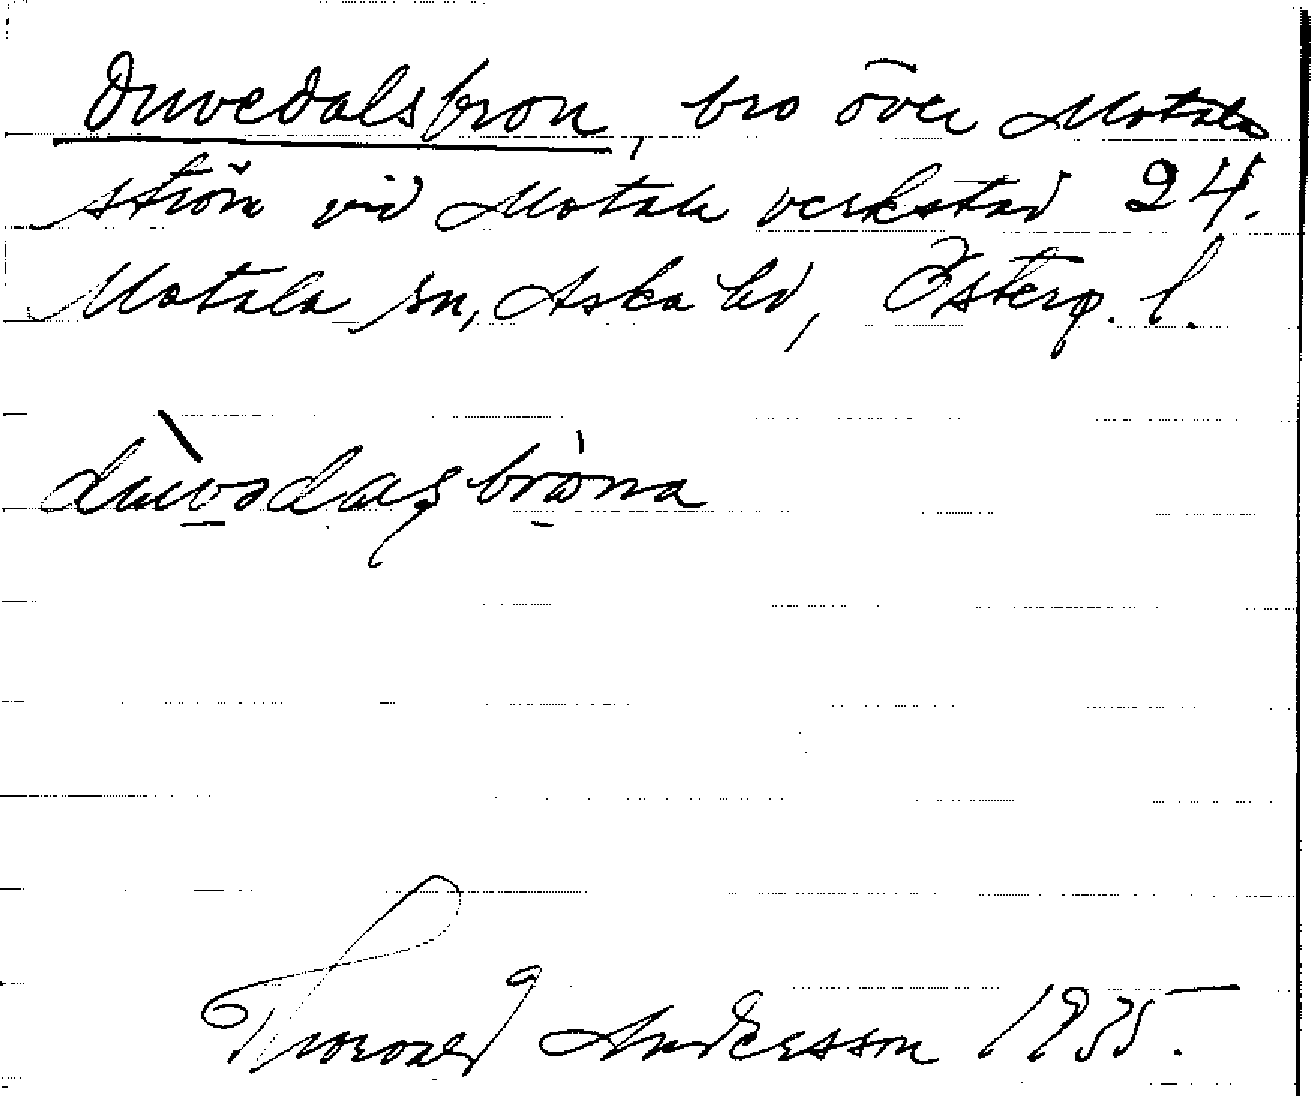 Duvedalsbron, bro över Motala
ström vid Motala verkstad 24.
Motala sn, Aska hd, Österg. l.
duvədasbrona
Thorvald Andersson 1935.